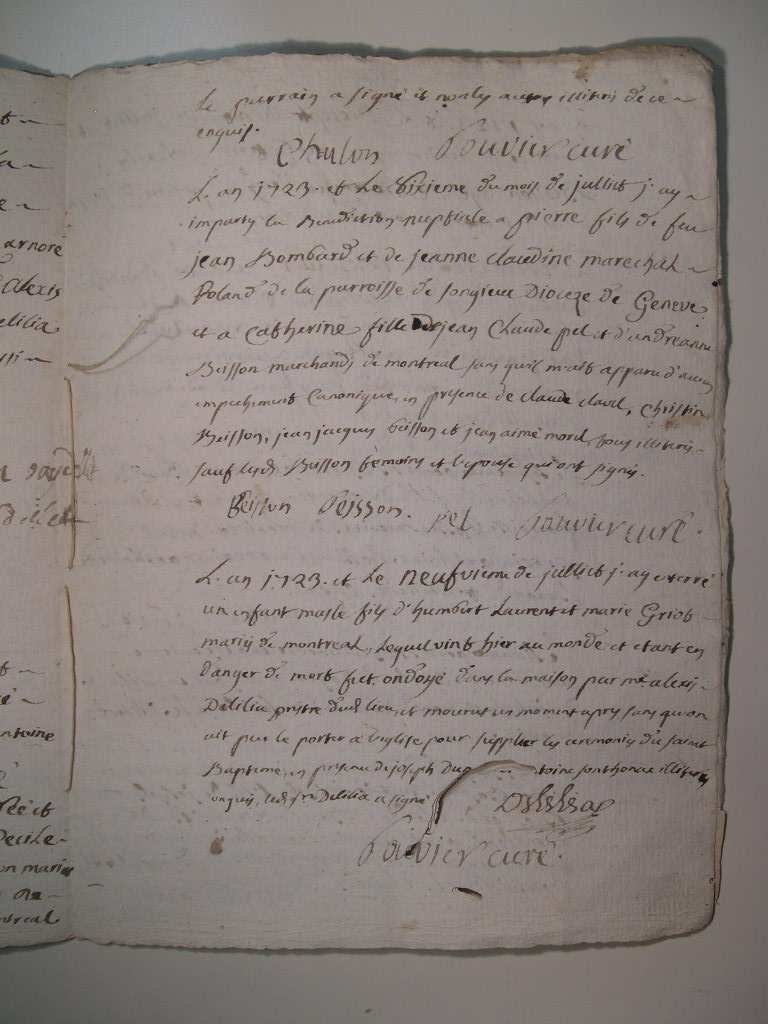 le parrain a signé et non les autres illiterés de ce
enquis.
Chulon Bouvier curé
L'an 1723. et le sixieme du mois de julliet j'ay
imparty la Benediction nuptiale a pierre fils de feu
jean Bombard et de jeanne claudine marechal
Roland de la parroisse de songieu Dioceze de Geneve
et a Catherine fille de jean Claude pel et d'andreanne
Beisson marchands de montreal sans qu'il m'ait apparu d'aucun
empechement Canonique, en presence de claude clavel, Christin
Beisson, jean jacques beisson et jean aimé morel, tous illiterés
sauf lesds Beisson temoins et l'epouse qui ont signés.
Beisson beisson. pel Bouvier curé.
L'an 1723. et Le neufvieme de julliet j'ay enterré
un enfant masle fils d'humbert Laurent et marie Griot
mariés de montreal, Lequel vint hier au monde et etant en
danger de mort fut ondoyé dans la maison par mre alexis
Delilia prestre dud lieu, et mourut un moment apres sans qu'on
ait pu le porter a l'eglise pour suppleer les ceremonies du saint
Bapteme, en presence de joseph illiterés
enquis, led sr Delilia a signé
Bouvier curé.
arnoré
alexis
delilia
antoine
et
on mariés
montreal